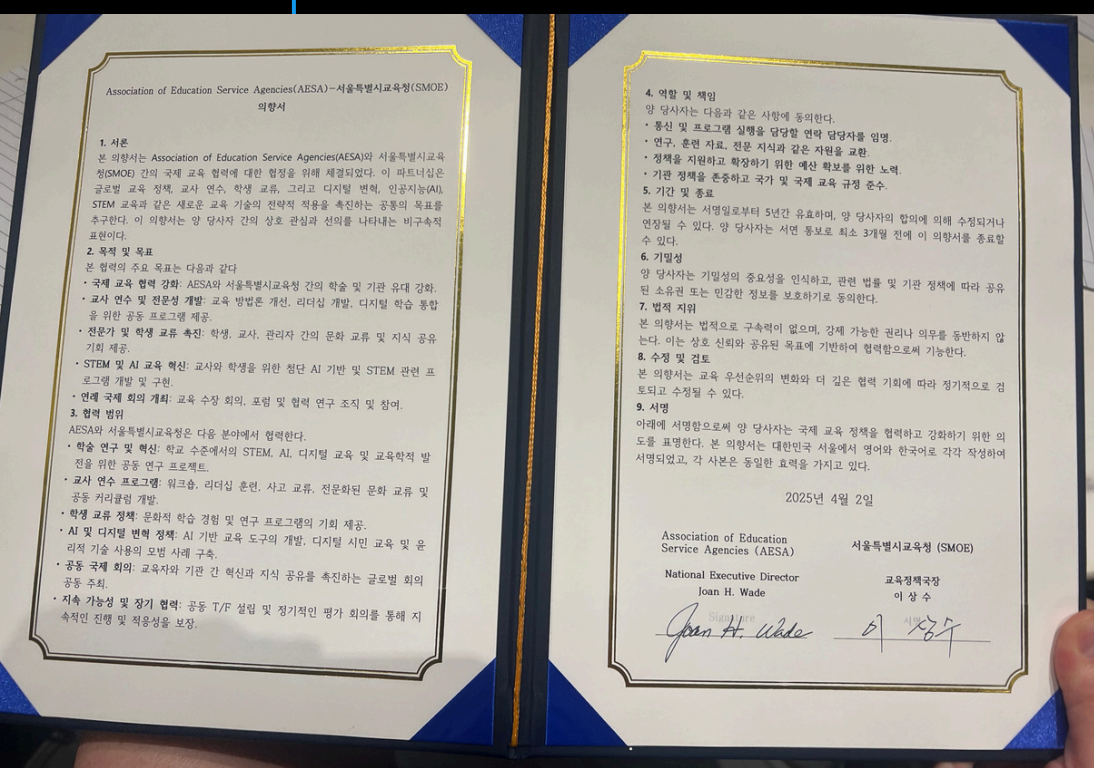 Association of Education Service Agencies(AESA)-서울특별시교육청(SMOE)
의향서
1. 서론
본 의향서는 Association of Education Service Agencies(AESA)와 서울특별시교육
청(SMOE) 간의 국제 교육 협력에 대한 협정을 위해 체결되었다. 이 파트너십은
글로벌 교육 정책, 교사 연수, 학생 교류, 그리고 디지털 변혁, 인공지능(AI),
STEM 교육과 같은 새로운 교육 기술의 전략적 적용을 촉진하는 공통의 목표를
추구한다. 이 의향서는 양 당사자 간의 상호 관심과 선의를 나타내는 비구속적
표현이다.
2. 목적 및 목표
본 협력의 주요 목표는 다음과 같다
· 국제 교육 협력 강화: AESA와 서울특별시교육청 간의 학술 및 기관 유대 강화.
· 교사 연수 및 전문성 개발: 교육 방법론 개선, 리더십 개발, 디지털 학습 통합
을 위한 공동 프로그램 제공.
· 전문가 및 학생 교류 촉진: 학생, 교사, 관리자 간의 문화 교류 및 지식 공유
기회 제공.
· STEM 및 AI 교육 혁신: 교사와 학생을 위한 첨단 AI 기반 및 STEM 관련 프
로그램 개발 및 구현.
· 연례 국제 회의 개최: 교육 수장 회의, 포럼 및 협력 연구 조직 및 참여.
3. 협력 범위
AESA와 서울특별시교육청은 다음 분야에서 협력한다.
· 학술 연구 및 혁신: 학교 수준에서의 STEM, AI, 디지털 교육 및 교육학적 발
전을 위한 공동 연구 프로젝트.
· 교사 연수 프로그램: 워크숍, 리더십 훈련, 사고 교류, 전문화된 문화 교류 및
공동 커리큘럼 개발.
· 학생 교류 정책: 문화적 학습 경험 및 연구 프로그램의 기회 제공.
· AI 및 디지털 변혁 정책: AI 기반 교육 도구의 개발, 디지털 시민 교육 및 윤
리적 기술 사용의 모범 사례 구축.
· 공동 국제 회의: 교육자와 기관 간 혁신과 지식 공유를 촉진하는 글로벌 회의
공동 주최.
· 지속 가능성 및 장기 협력: 공동 T/F 설립 및 정기적인 평가 회의를 통해 지
속적인 진행 및 적응성을 보장.
4. 역할 및 책임
양 당사자는 다음과 같은 사항에 동의한다.
· 통신 및 프로그램 실행을 담당할 연락 담당자를 임명.
· 연구, 훈련 자료, 전문 지식과 같은 자원을 교환.
· 정책을 지원하고 확장하기 위한 예산 확보를 위한 노력.
· 기관 정책을 존중하고 국가 및 국제 교육 규정 준수.
5. 기간 및 종료
본 의향서는 서명일로부터 5년간 유효하며, 양 당사자의 합의에 의해 수정되거나
연장될 수 있다. 양 당사자는 서면 통보로 최소 3개월 전에 이 의향서를 종료할
수 있다.
6. 기밀성
양 당사자는 기밀성의 중요성을 인식하고, 관련 법률 및 기관 정책에 따라 공유
된 소유권 또는 민감한 정보를 보호하기로 동의한다.
7. 법적 지위
본 의향서는 법적으로 구속력이 없으며, 강제 가능한 권리나 의무를 동반하지 않
는다. 이는 상호 신뢰와 공유된 목표에 기반하여 협력함으로써 기능한다.
8. 수정 및 검토
본 의향서는 교육 우선순위의 변화와 더 깊은 협력 기회에 따라 정기적으로 검
토되고 수정될 수 있다.
9. 서명
아래에 서명함으로써 양 당사자는 국제 교육 정책을 협력하고 강화하기 위한 의
도를 표명한다. 본 의향서는 대한민국 서울에서 영어와 한국어로 각각 작성하여
서명되었고, 각 사본은 동일한 효력을 가지고 있다.
2025년 4월 2일
Association of Education
Service Agencies (AESA)
National Executive Director
Joan H. Wade
Signature
Joan H. Wade
서울특별시교육청 (SMOE)
교육정책국장
이 상 수
서명
이 상수